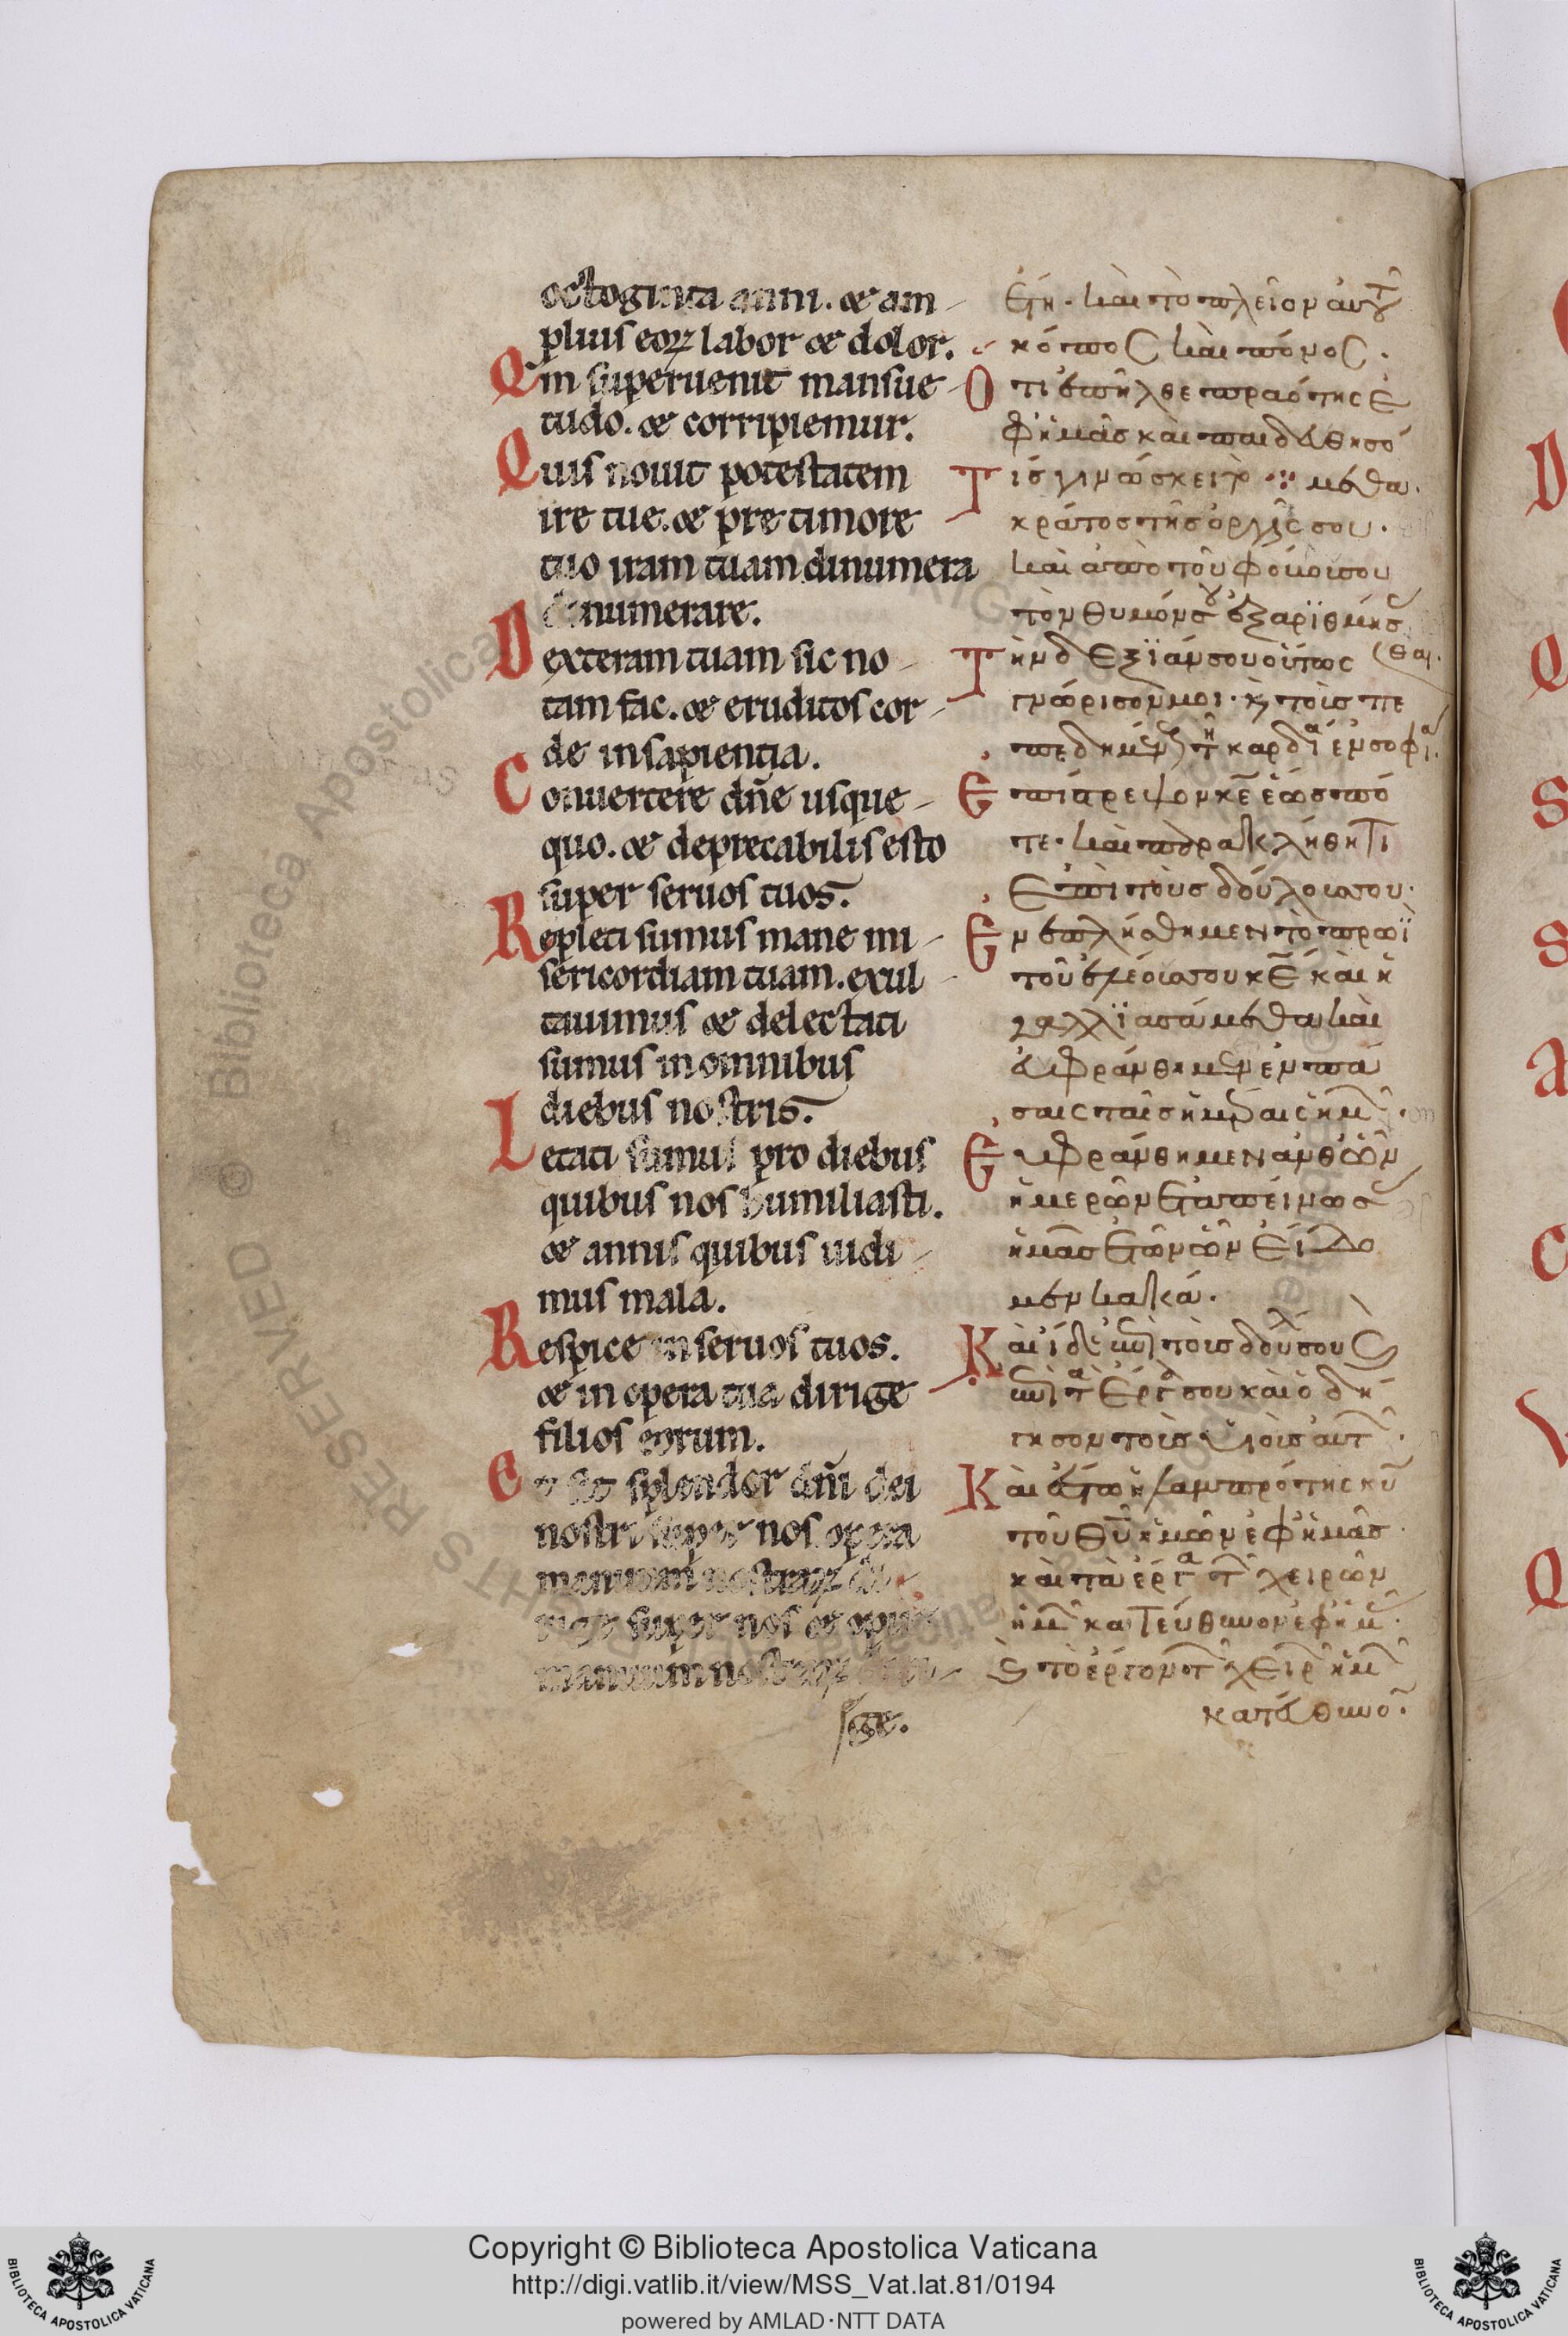 octoginta anni. & am-
plius eoꝝ labor & dolor.
Qm superuenit mansue-
tudo. & corripiemur.
Quis nouit potestatem
ire tue. & pre timore
tuo iram tuam dinumera
dinumerare.
Dexteram tuam sic no-
tam fac. & eruditos cor-
de in sapientia.
Conuertere dn̄e usque-
quo. & deprecabilis esto
super seruos tuos.
Repleti sumus mane mi-
sericordiam tuam. exul-
tauimus & delectati
sumus in omnibus
diebus nostris.
Letati sumus pro diebus
quibus nos humiliasti.
& annis quibus uidi-
mus mala.
Respice in seruos tuos.
& in opera tua dirige
filios eorum.
Et sit splendor dn̄i dei
nostri super nos opera
manuum nostraꝝ di-
rige super nos & opus
manuum nostraꝝ diri-
ge.
ἔτη. καὶ τὸ πλεῖον αὐτ
κόπος καὶ πόνος.
Ὅτι ἐπῆλθε πραότης ἐ
φ ἡμᾶς καὶ παιδευθησό
μεθα.
Τίς γινώσκει τὸ
κράτος τῆς ὀργῆς σου.
καὶ ἀπὸ τοῦ φόβου σου
τὸν θυμόν σου ἐξαρϊθμήσ
θαι.
Τὴν δεξϊάν σου οὕτως
γνώρισόν μοι. κ̀ τοὺς πε
πεδημέν τῇ καρδίᾳ ἐν σοφίᾳ.
Ἐπίστρεψον κε̄ ἕως πό
τε. καὶ παρακλήθητι
ἐπὶ τοὺς δούλους σου.
Ἐνεπλήσθημεν τὸ πρωῒ
τοῦ ἐλέους σου κε̄ καὶ ἠ
γαλλϊασάμεθα καὶ
εὐφράνθημεν ἐν πά
σαις ταῖς ἡμέραις ἡμ.
Εὐφράνθημεν ἀνθ ὧν
ἡμερῶν ἐταπείνωσ
ἡμᾶς ἐτῶν ὧν εἴδο
μεν κακά.
Καὶ ἴδε ἐπὶ τοὺς δούλ σου κ̀
ἐπὶ τὰ ἔργα σου καὶ ὁδή
γησον τοὺς υἱοὺς αὐτ.
Καὶ ἔστω ἡ λαμπρότης κῡ
τοῦ θῡ ἡμῶν ἐφ ἡμᾶς
καὶ τὰ ἔργα τ χειρῶν
ἡμ κατεύθυνον ἐφ ἡμ.
κ̀ τὸ ἔργον τ χειρ ἡμ
κατεύθυνο.
© Biblioteca Apostolica Vaticana
Copyright © Biblioteca Apostolica Vaticana
http://digi.vatlib.it/view/MSS_Vat.lat.81/0194
powered by AMLAD·NTT DATA
BIBLIOTECA APOSTOLICA VATICANA
BIBLIOTECA APOSTOLICA VATICANA